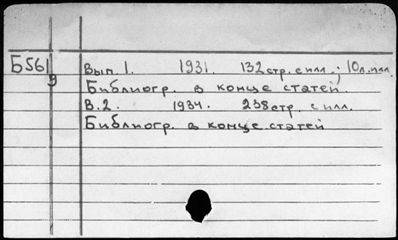 Б561 Вып. 1. 1931. 132 стр. с илл.; 10 л. илл.
9
Библиогр. в конце статей.
В. 2. 1934. 238 стр. с илл.
Библиогр. в конце статей